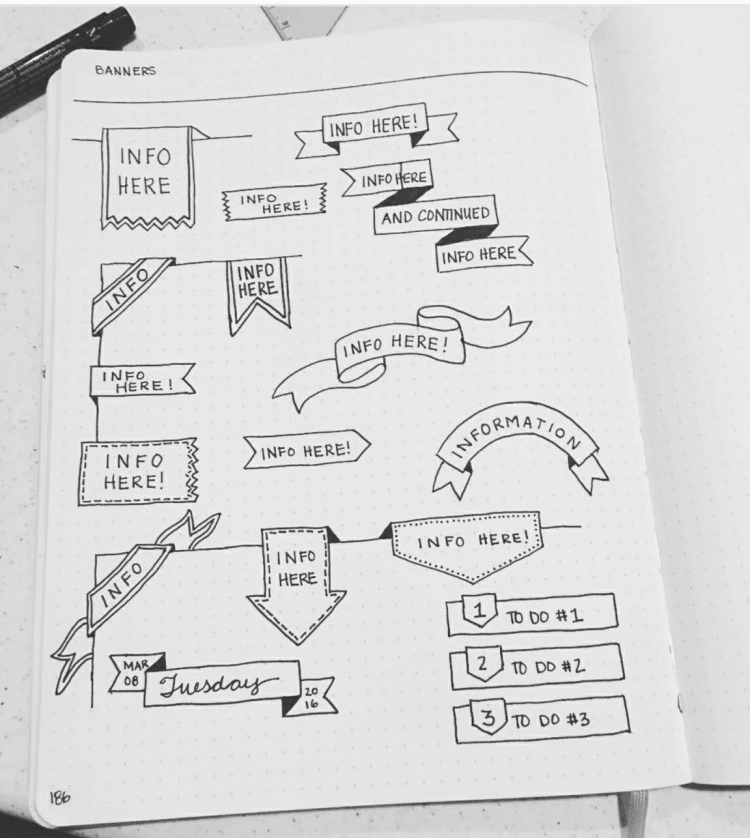 BANNERS
INFO
HERE
INFO HERE!
INFO
HERE!
INFO HERE
AND CONTINUED
INFO HERE
INFO
INFO
HERE
INFO HERE!
INFO
HERE!
INFO HERE!
INFORMATION
INFO
HERE!
INFO
INFO
HERE
INFO HERE!
1 TO DO #1
2 TO DO #2
3 TO DO #3
MAR
08
Tuesday
20
16
186